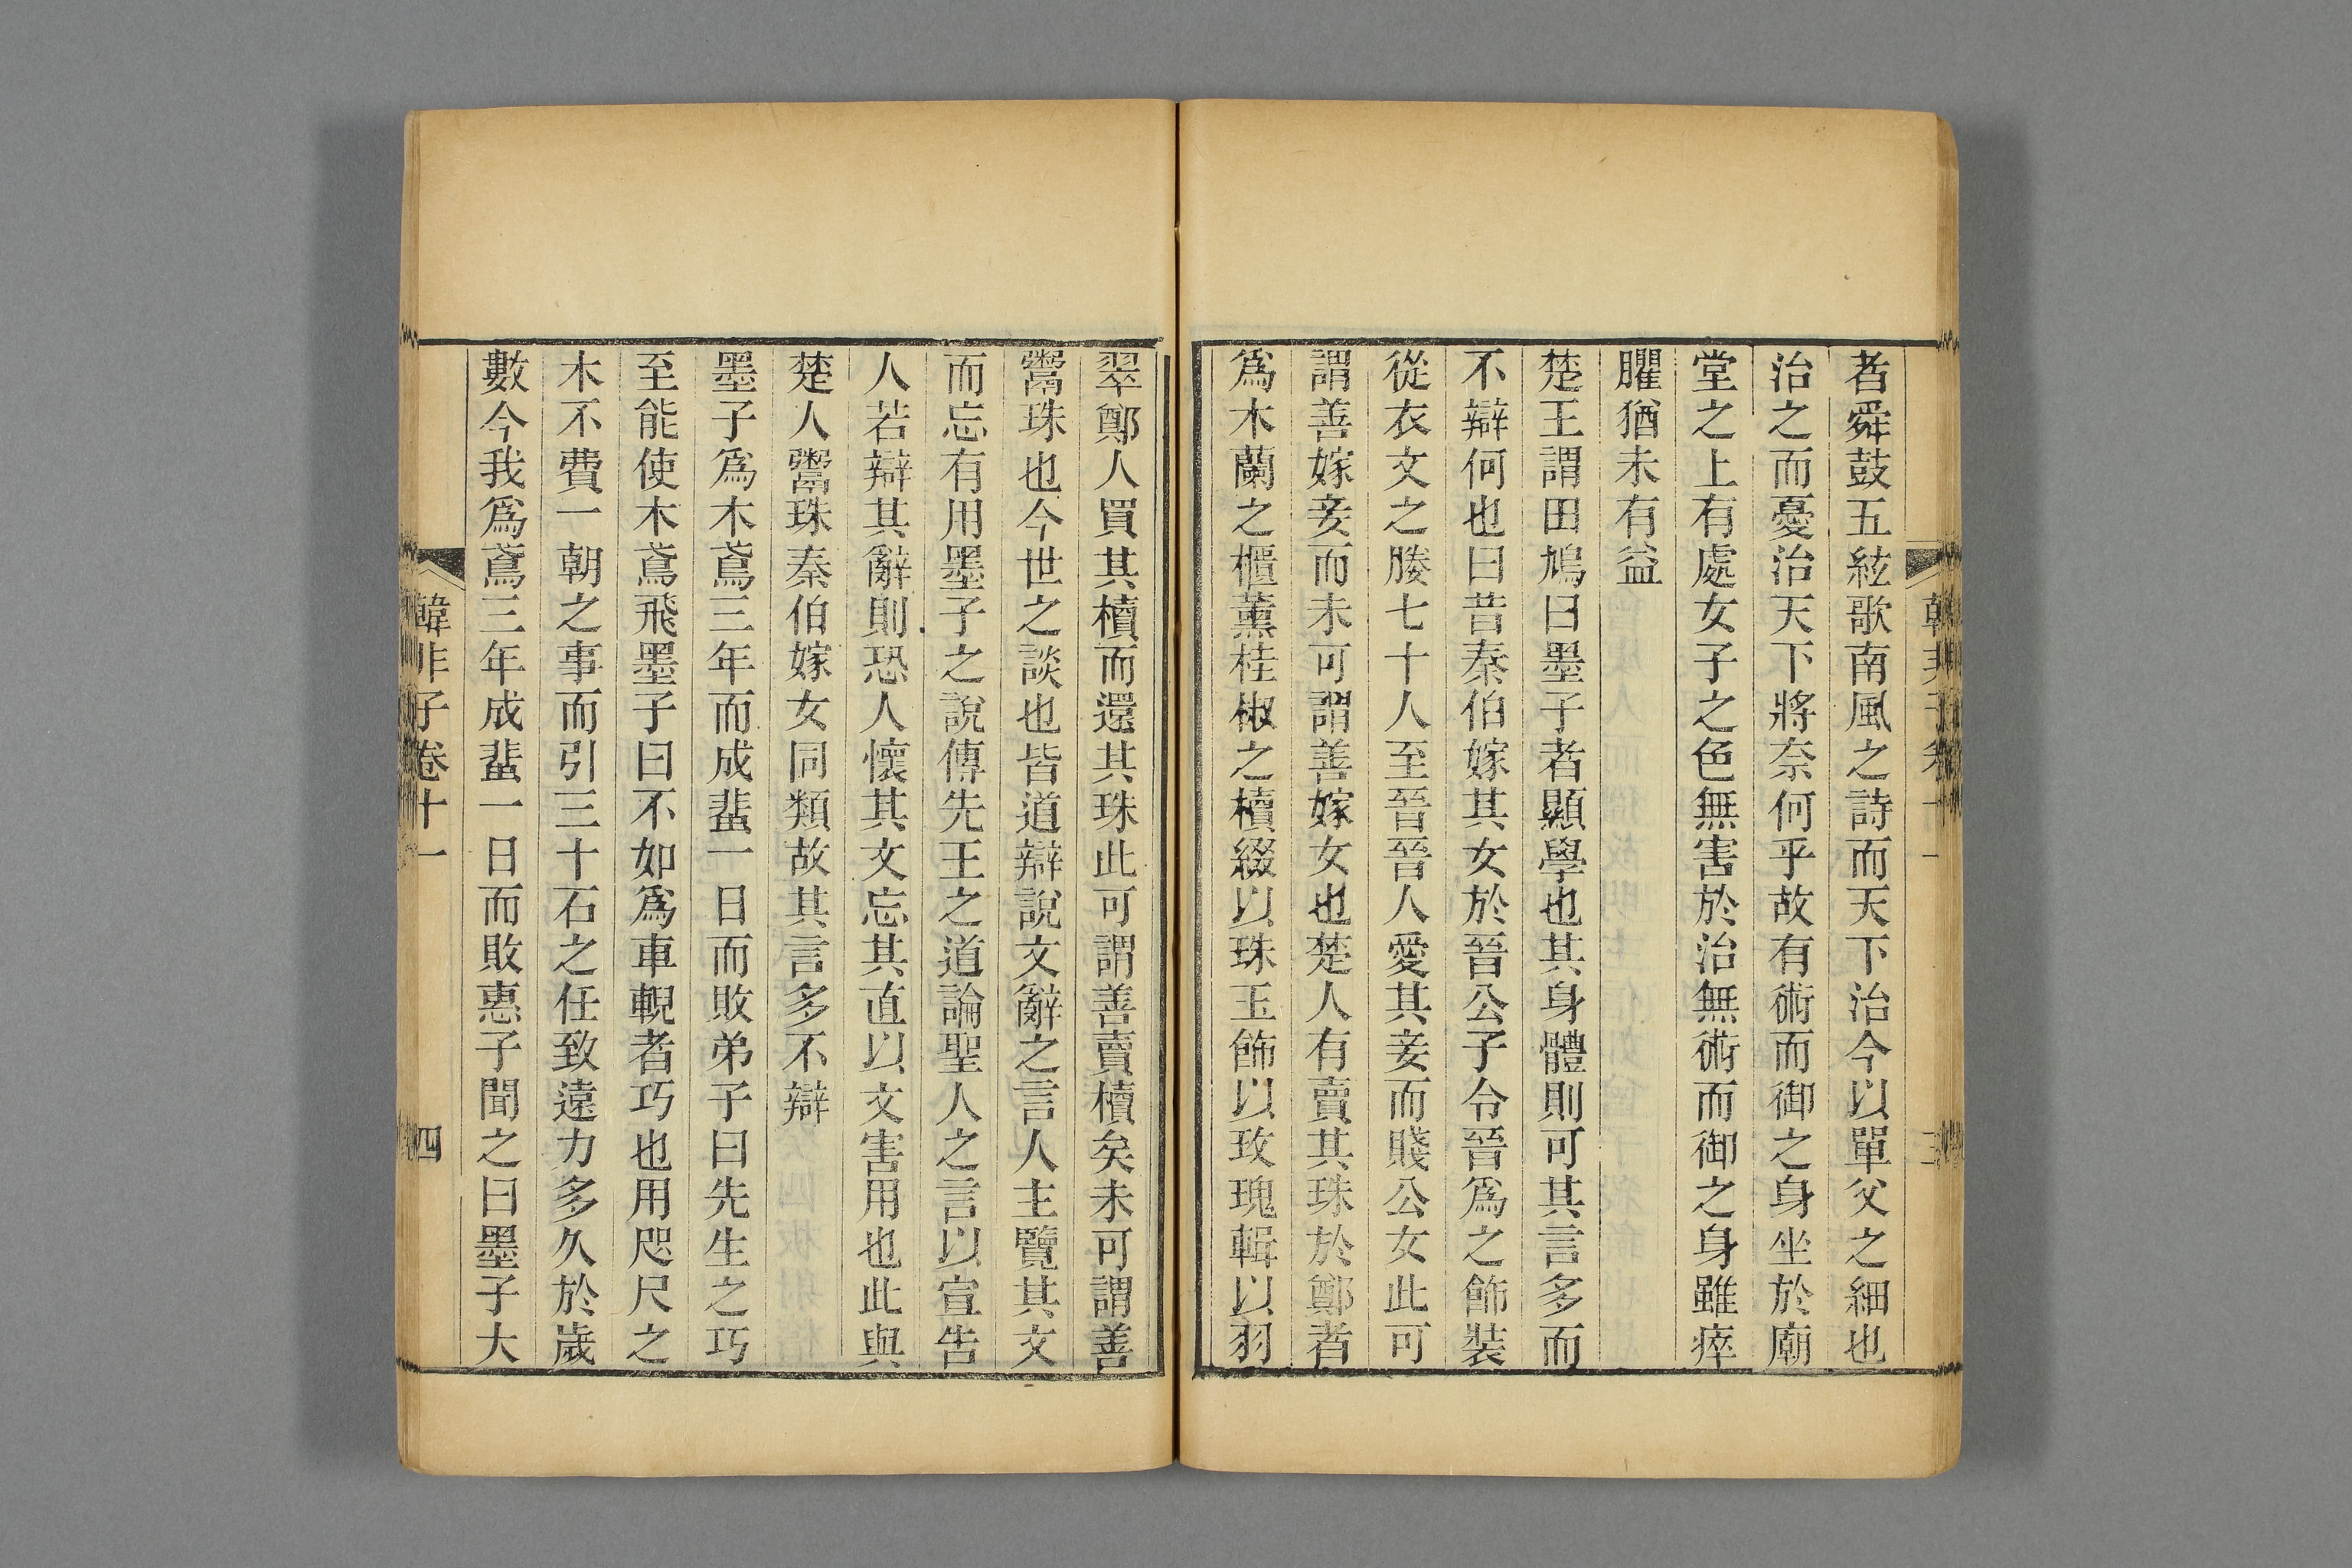 者舜鼓五絃歌南風之詩而天下治今以單父之細也
治之而憂治天下將奈何乎故有術而御之身坐於廟
堂之上有處女子之色無害於治無術而御之身雖瘁
臞猶未有益
楚王謂田鳩曰墨子者顯學也其身體則可其言多而
不辯何也曰昔秦伯嫁其女於晉公子令晉爲之飾裝
從衣文之媵七十人至晉晉人愛其妾而賤公女此可
謂善嫁妾而未可謂善嫁女也楚人有賣其珠於鄭者
爲木蘭之櫃薰桂椒之櫝綴以珠玉飾以玫瑰輯以羽
翠鄭人買其櫝而還其珠此可謂善賣櫝矣未可謂善
鬻珠也今世之談也皆道辯說文辭之言人主覽其文
而忘有用墨子之說傳先王之道論聖人之言以宣告
人若辯其辭則恐人懷其文忘其直以文害用也此與
楚人鬻珠秦伯嫁女同類故其言多不辯
墨子爲木鳶三年而成蜚一日而敗弟子曰先生之巧
至能使木鳶飛墨子曰不如爲車輗者巧也用咫尺之
木不費一朝之事而引三十石之任致遠力多久於歲
數今我爲鳶三年成蜚一日而敗惠子聞之曰墨子大
韓非子卷十一
四